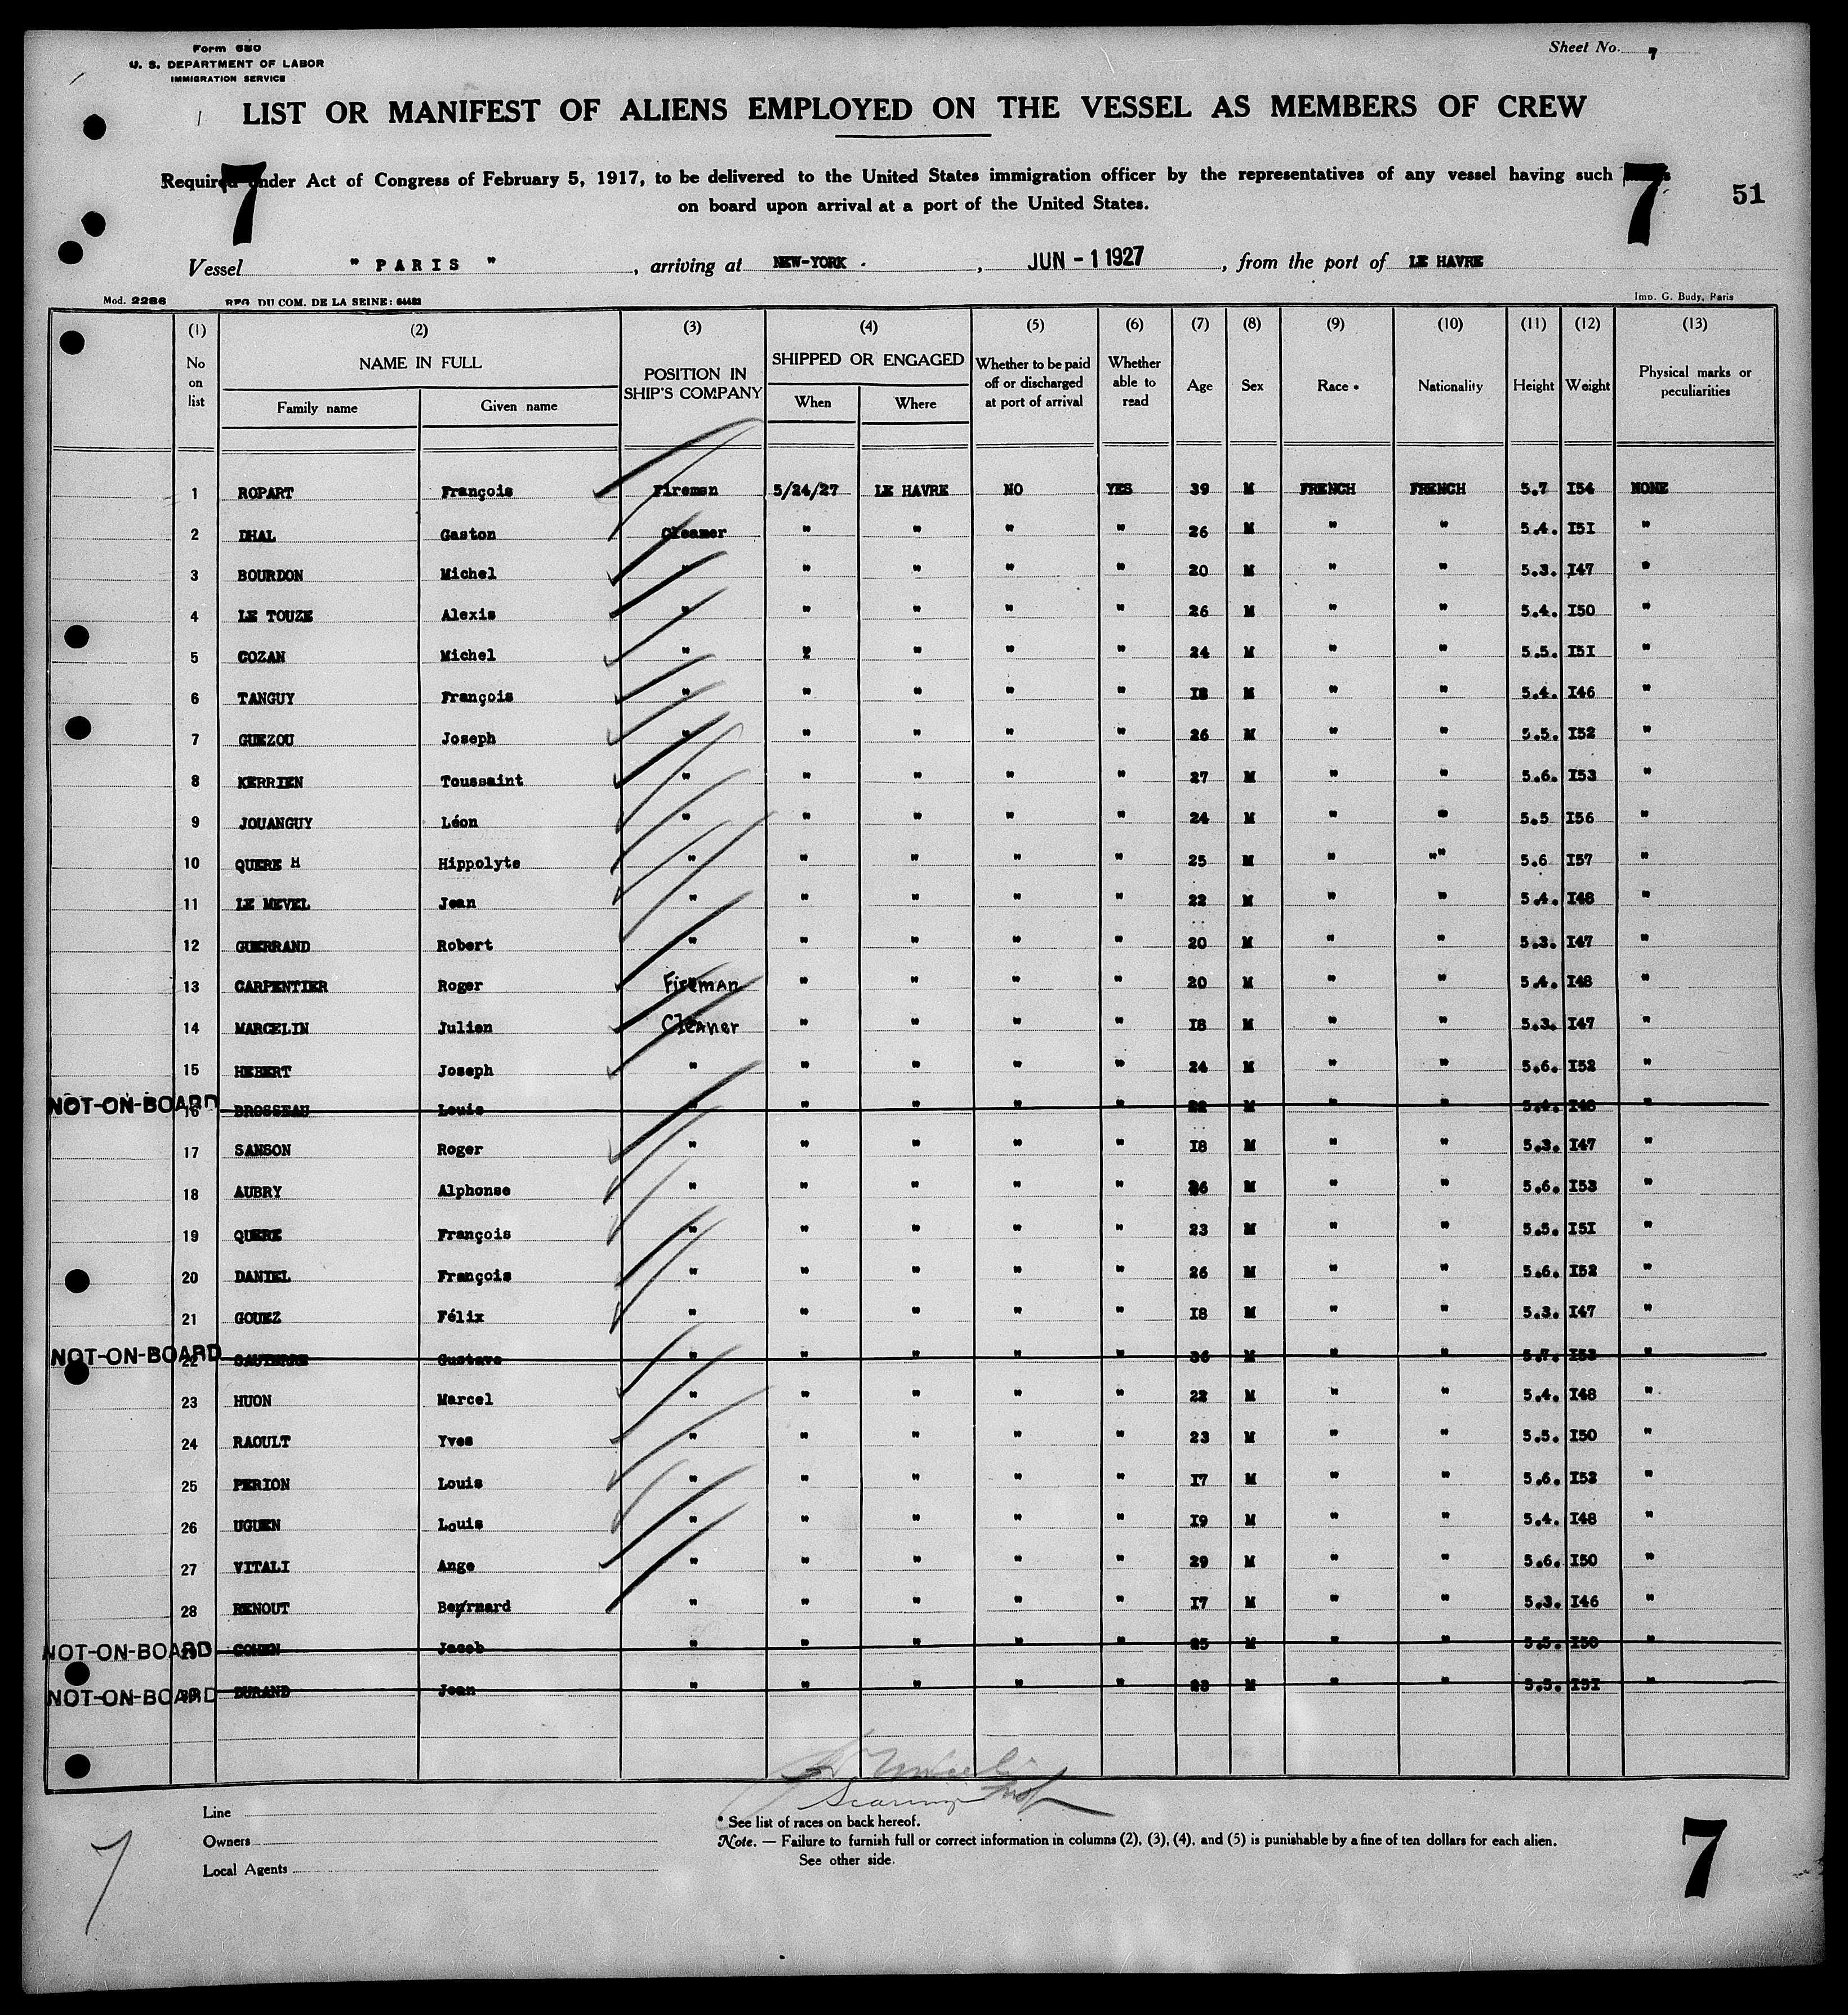 Form 680
U. S. DEPARTMENT OF LABOR
IMMIGRATION SERVICE
Sheet No. 7
LIST OR MANIFEST OF ALIENS EMPLOYED ON THE VESSEL AS MEMBERS OF CREW
Required under Act of Congress of February 5, 1917, to be delivered to the United States immigration officer by the representatives of any vessel having such
on board upon arrival at a port of the United States.
7 7 51
Vessel " PARIS " , arriving at NEW-YORK . , JUN - 1 1927 , from the port of LE HAVRE
Mod. 2286 REG. DU COM. DE LA SEINE: 64483 Imp. G. Budy, Paris
(1) (2) (3) (4) (5) (6) (7) (8) (9) (10) (11) (12) (13)
No on list NAME IN FULL POSITION IN SHIP'S COMPANY SHIPPED OR ENGAGED Whether to be paid off or discharged at port of arrival Whether able to read Age Sex Race • Nationality Height Weight Physical marks or peculiarities
Family name Given name When Where
1 ROPART François Fireman 5/24/27 LE HAVRE NO YES 39 M FRENCH FRENCH 5.7 I54 NONE
2 DHAL Gaston Cleaner " " " " 26 M " " 5.4. I5I "
3 BOURDON Michel " " " " " 20 M " " 5.3. I47 "
4 LE TOUZE Alexis " " " " " 26 M " " 5.4. I50 "
5 COZAN Michel " 2 " " " 24 M " " 5.5. I5I "
6 TANGUY François " " " " " I8 M " " 5.4. I46 "
7 GUEZOU Joseph " " " " " 26 M " " 5.5. I52 "
8 KERRIEN Toussaint " " " " " 27 M " " 5.6. I53 "
9 JOUANGUY Léon " " " " " 24 M " " 5.5 I56 "
10 QUERE H Hippolyte " " " " " 25 M " "" 5.6 I57 "
11 LE MEVEL Jean " " " " " 22 M " " 5.4. I48 "
12 GUERRAND Robert " " " " " 20 M " " 5.3. I47 "
13 CARPENTIER Roger Fireman " " " " 20 M " " 5.4. I48 "
14 MARCELIN Julien Cleaner " " " " I8 M " " 5.3. I47 "
15 HEBERT Joseph " " " " " 24 M " " 5.6. I52 "
NOT-ON-BOARD 16 BROSSEAU Louis " " " " " 22 M " " 5.4. I48 "
17 SANSON Roger " " " " " I8 M " " 5.3. I47 "
18 AUBRY Alphonse " " " " " 26 M " " 5.6. I53 "
19 QUERE François " " " " " 23 M " " 5.5. I5I "
20 DANIEL François " " " " " 26 M " " 5.6. I52 "
21 GOUEZ Félix " " " " " I8 M " " 5.3. I47 "
NOT-ON-BOARD 22 SAUTERRE Gustave " " " " " 36 M " " 5.7. I53 "
23 HUON Marcel " " " " " 22 M " " 5.4. I48 "
24 RAOULT Yves " " " " " 23 M " " 5.5. I50 "
25 PERION Louis " " " " " I7 M " " 5.6. I52 "
26 UGUEN Louis " " " " " I9 M " " 5.4. I48 "
27 VITALI Ange " " " " " 29 M " " 5.6. I50 "
28 RENOUT Bernard " " " " " I7 M " " 5.3. I46 "
NOT-ON-BOARD 29 COHEN Jacob " " " " " 25 M " " 5.5. I50 "
NOT-ON-BOARD 30 DURAND Jean " " " " " 23 M " " 5.5. I5I "
Line
Owners
Local Agents
• See list of races on back hereof.
Note. — Failure to furnish full or correct information in columns (2), (3), (4), and (5) is punishable by a fine of ten dollars for each alien.
See other side.
7 7